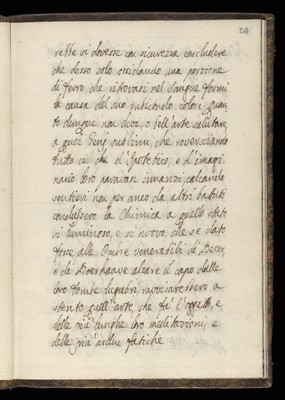 24
rebbe si dovesse con sicurezza concludere
che desso solo ossidando una porzione
di ferro, che ritrovasi nel Sangue formi
la causa del suo rubicondo colore. Quan
to dunque non devi, o bell'arte salutare,
a quei Genj sublimi, che rovesciando
tutto ciò che d'Ipotetico, e d'imagi
nario loro paravasi innanzi, calcando
sentieri non per anco da altri battuti
condussero la Chimica a quello stato
sì luminoso, e sì nuovo, che se dato
fosse alle Ombre venerabili di Beccer,
e di Boerhaave alzare il capo dalle
loro tombe lugubri, ravviserebbero a
stento quell'arte, che fu l'oggetto, e
delle più lunghe loro meditazioni, e
delle più ardue fatiche.